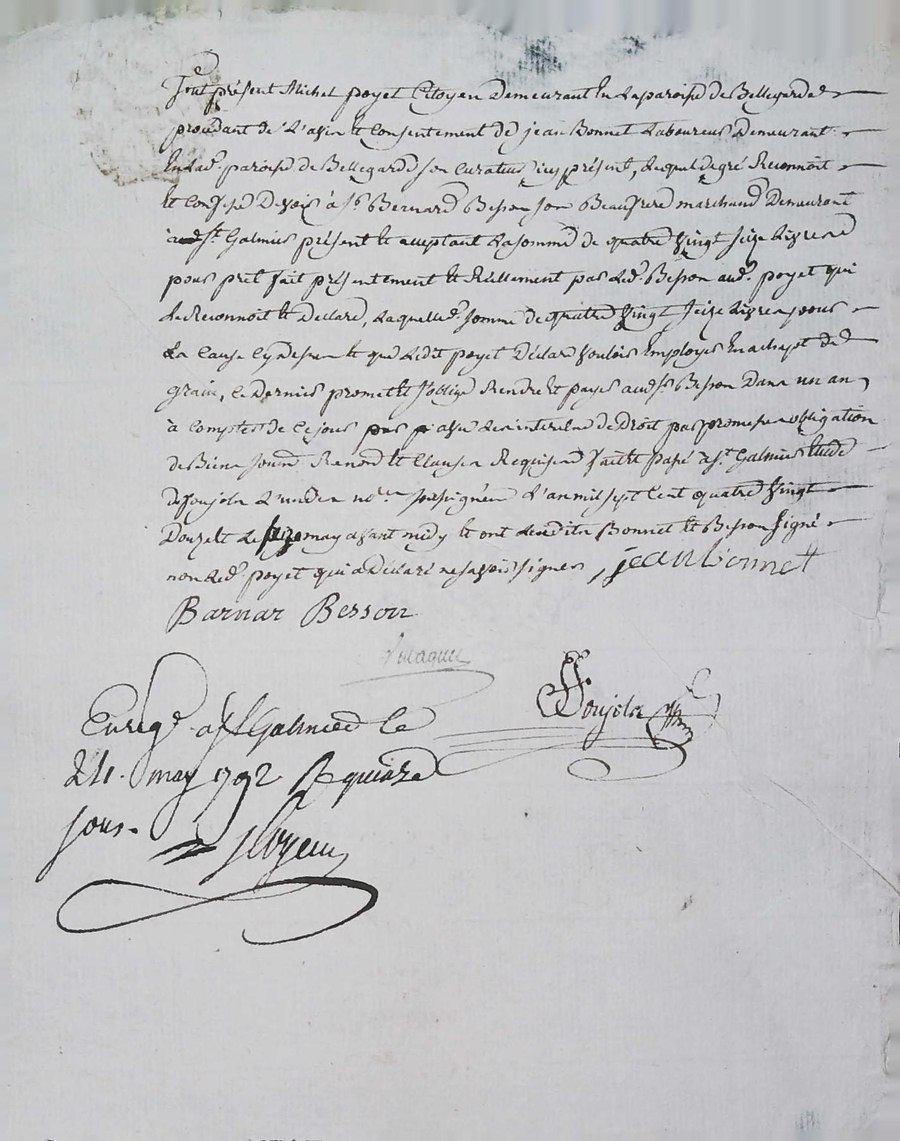 fut présent Michel poyet Citoyen Demeurant En La paroisse de Bellegarde
procédant de L'avis et Consentement de jean Bonnet Laboureur Demeurant
En Lad. paroisse de Bellegarde son Curateur icy présent, Lequel de gré Reconnoit
et Confesse Devoir à Sr Bernard Besson son Beaufrere marchand Demeurant
à St. Galmier présent et acceptant La somme de quatre Vingt seize Livres
pour pret fait présentement et Réellement par Led. Besson aud. poyet qui
Le Reconnoit et Declare, Laquelle. somme de quatre Vingt seize Livres pour
La Cause Cy dessus et que Ledit poyet Déclare Vouloir Employer En achapt de
grain, Ce Dernier promet et s'oblige Rendre et payer aud. Sr Besson dans un an
à Compter de Ce jour avec Les interets de Droit par promesse obligation
de Biens soumission Renonciation et Clauses Requises fait et passé à St. Galmier Etude
de Soujola L'un des nores soussignés L'an mil sept Cent quatre Vingt
Douze et Le seize may avant midy et ont Lesdits Bonnet et Besson signé
non Led. poyet qui a Déclaré ne savoir signer, jean bonnet
Barnar Besson
Soujola
Enregé. a St Galmier le
24. may 1792 R quinze
sous.